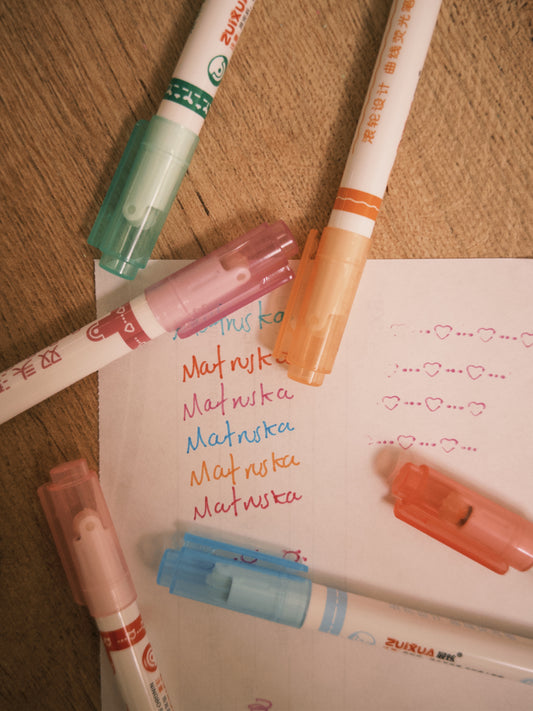 ZUIXUA
滚轮设计 曲线荧光笔
双头
Matruska
Matruska
Matruska
Matruska
Matruska
Matruska
ZUIXUA